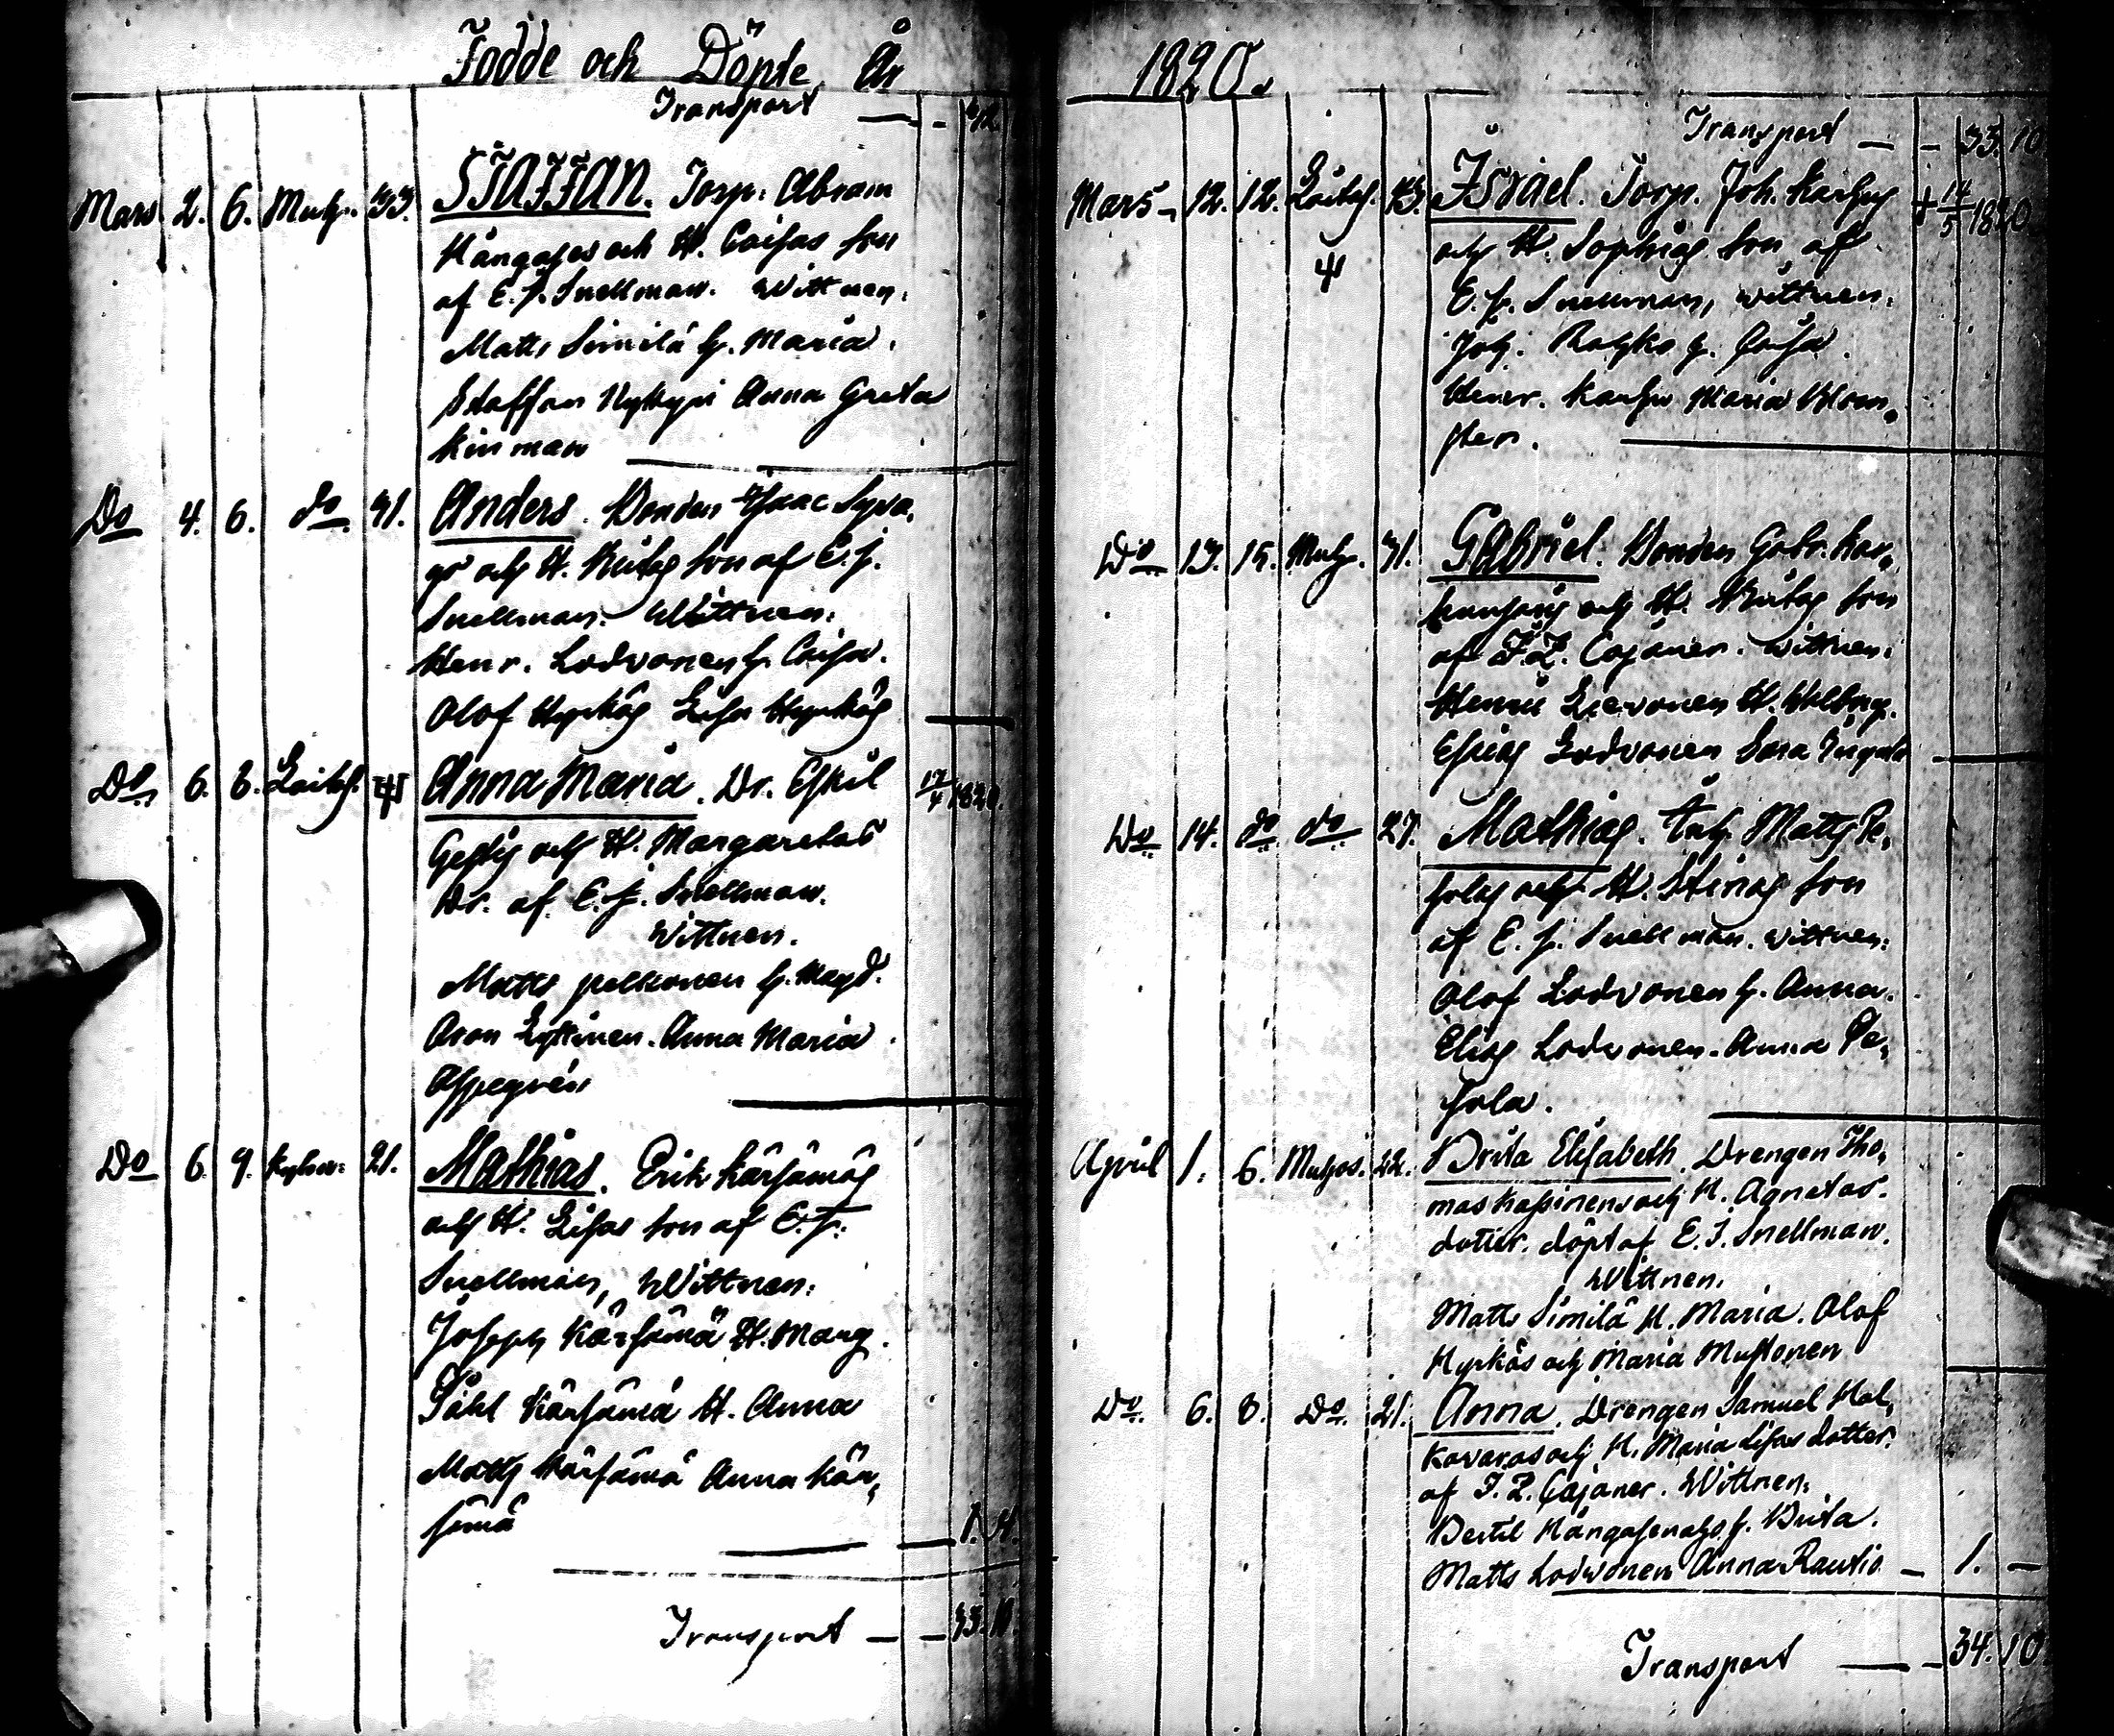 Födde och Döpte År
Transport
Mars 2. 6. Muh. 33. Staffan. Torp. Abram
Kångases och H. Caisas son
af E. J. Snellman. Wittnen.
Matts Similä h. Maria.
Staffan Nykyri Anna Greta
Kinman
Do 4. 6. do 31. Anders. Bonden Isaac
och H. Britas son af E. J.
Snellman. Wittnen.
Henr. Lodvonen h. Caisa.
Olof Hyrkäs Lisa Hyrkäs
Do 6. 8. Anna Maria. Dr. Eskil 17/4 1820.
och H. Margaretas
Dr. af E. J. Snellman.
Wittnen.
Matts Pelkonen h. Magd.
Aron Lyttinen. Anna Maria
Appegrén
Do 6. 9. 21. Mathias. Erik Kärsämäs
och H. Lisas son af E. J.
Snellman, Wittnen.
Joseph Kärsämä H. Marg.
Påhl Kärsämä H. Anna
Matts Kärsämä Anna Kär-
sämä 1. 4.
Transport — 33. 10.
1820.
Transport — 33. 10.
Mars 12. 12. Israel. Torp. Joh. + 14/5 1820
och H. Sophias son af
E. J. Snellman, wittnen.
Joh. h. Caisa.
Henr. Maria Blom-
ster.
Do 13. 15. Muh. 31. Gabriel. Bonden Gabr.
och H. Britas son
af J. Z. Cajaner. wittnen.
Henric H. Walborg.
Esaias Lodvonen Sara
Do 14. do do 27. Mathias. Matts Pe-
solas och H. Stinas son
af E. J. Snellman. wittnen.
Olof Lodvonen h. Anna.
Elias Lodvonen. Anna Pe-
sola.
April 1. 6. Muhos. 22. Brita Elisabeth. Drengen Tho-
mas Kassinens och H. Agnetas.
dotter. döpt af E. J. Snellman.
Wittnen.
Matts Similä H. Maria. Olof
Hyrkäs och Maria Mustonen
Do 6. 8. Do. 21. Anna. Drengen Samuel Hal-
kavaras och H. Maria Lisas dotter.
af J. Z. Cajaner. Wittnen.
Bertil h. Brita.
Matts Lodwonen Anna Rautio — 1. —
Transport — 34. 10